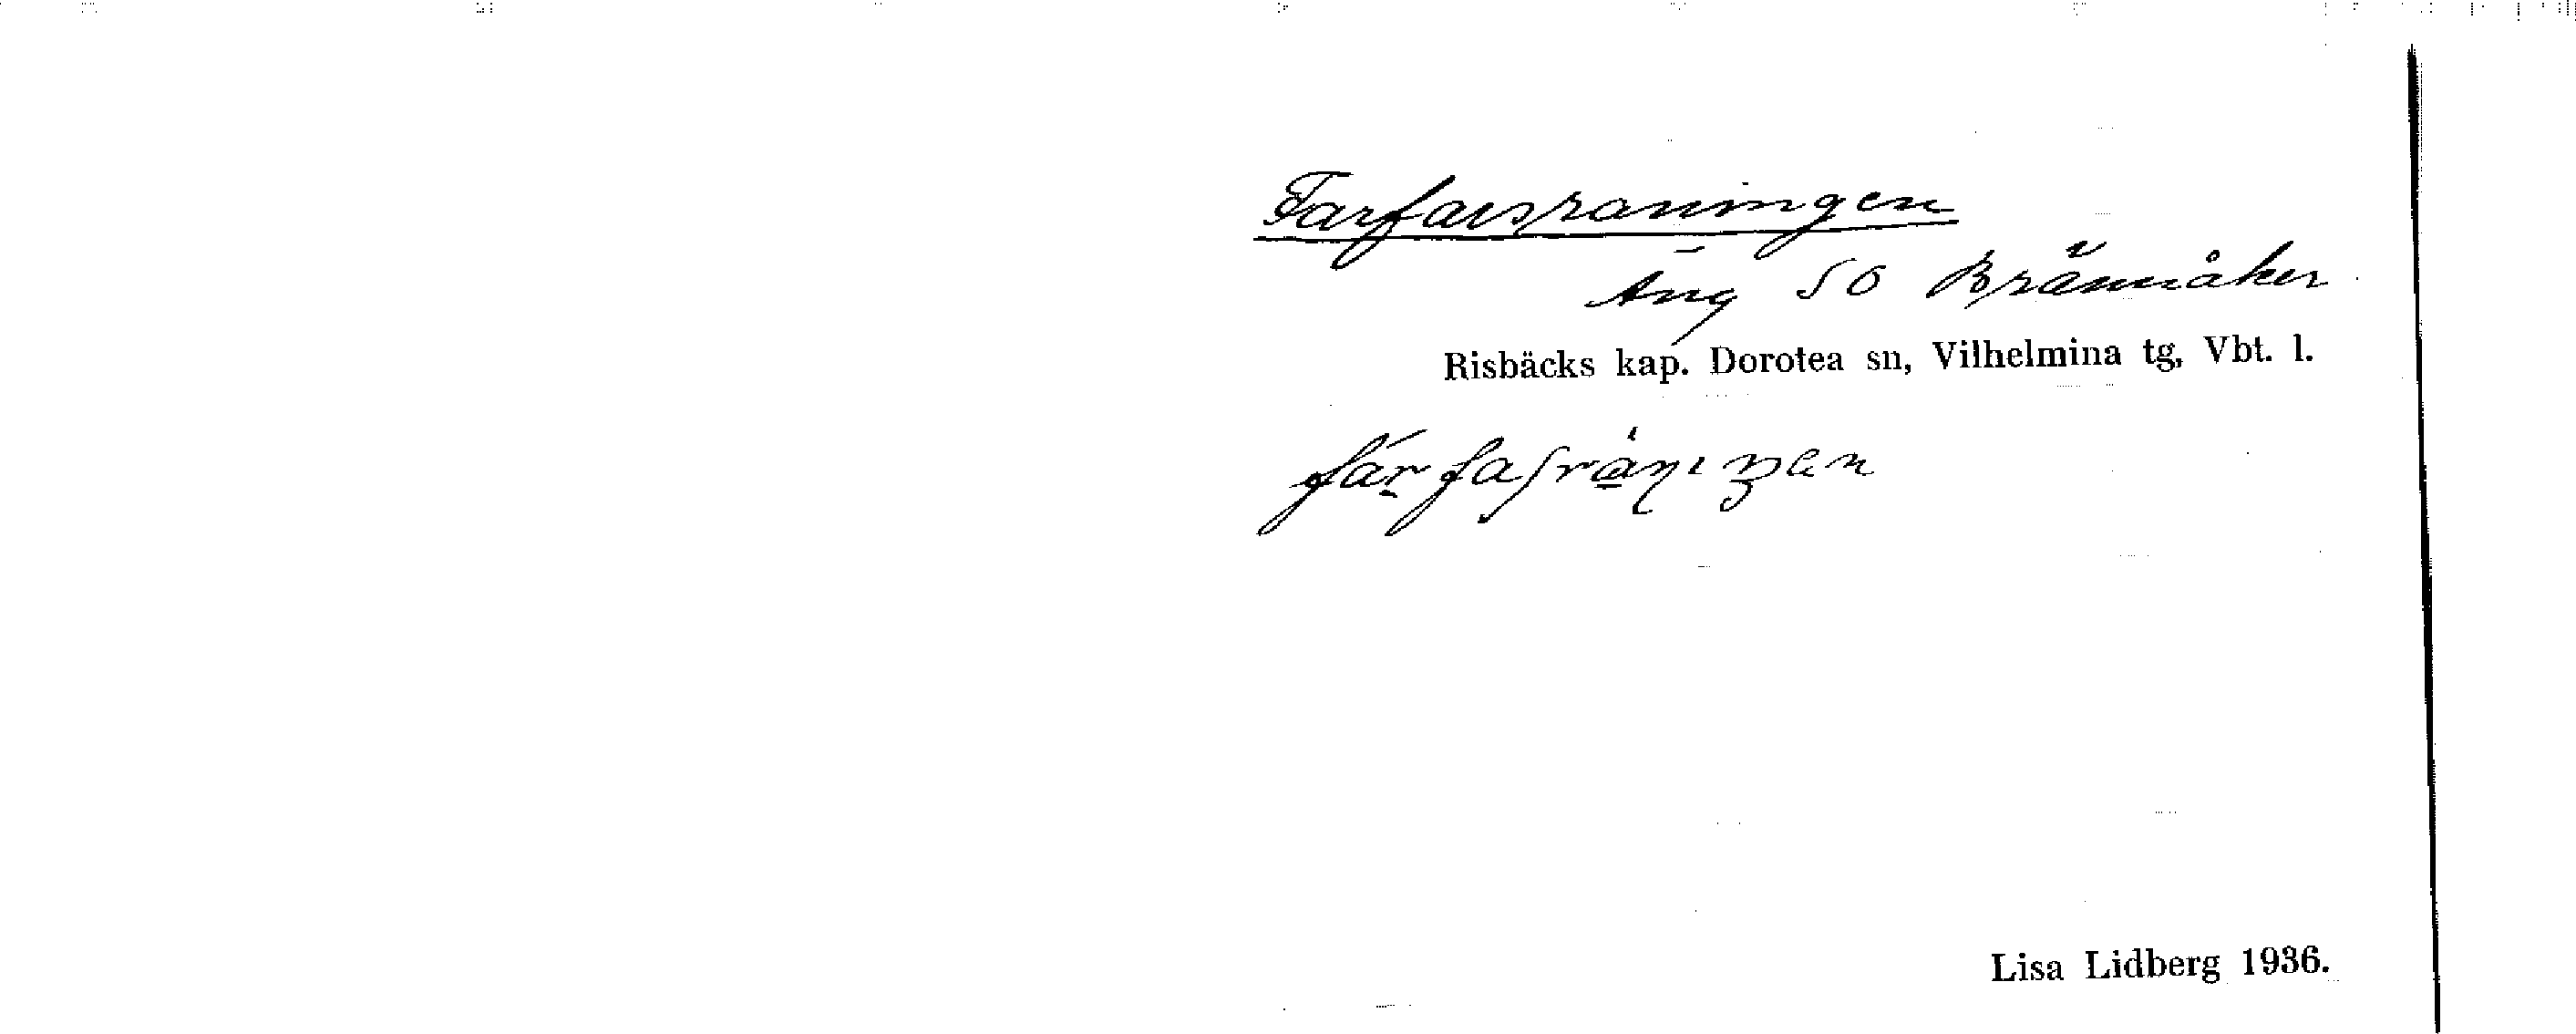 Farfarsraningen
Äng SO Brännåker
Risbäcks kap. Dorotea sn, Vilhelmina tg, Vbt. l.
Lisa Lidberg 1936.